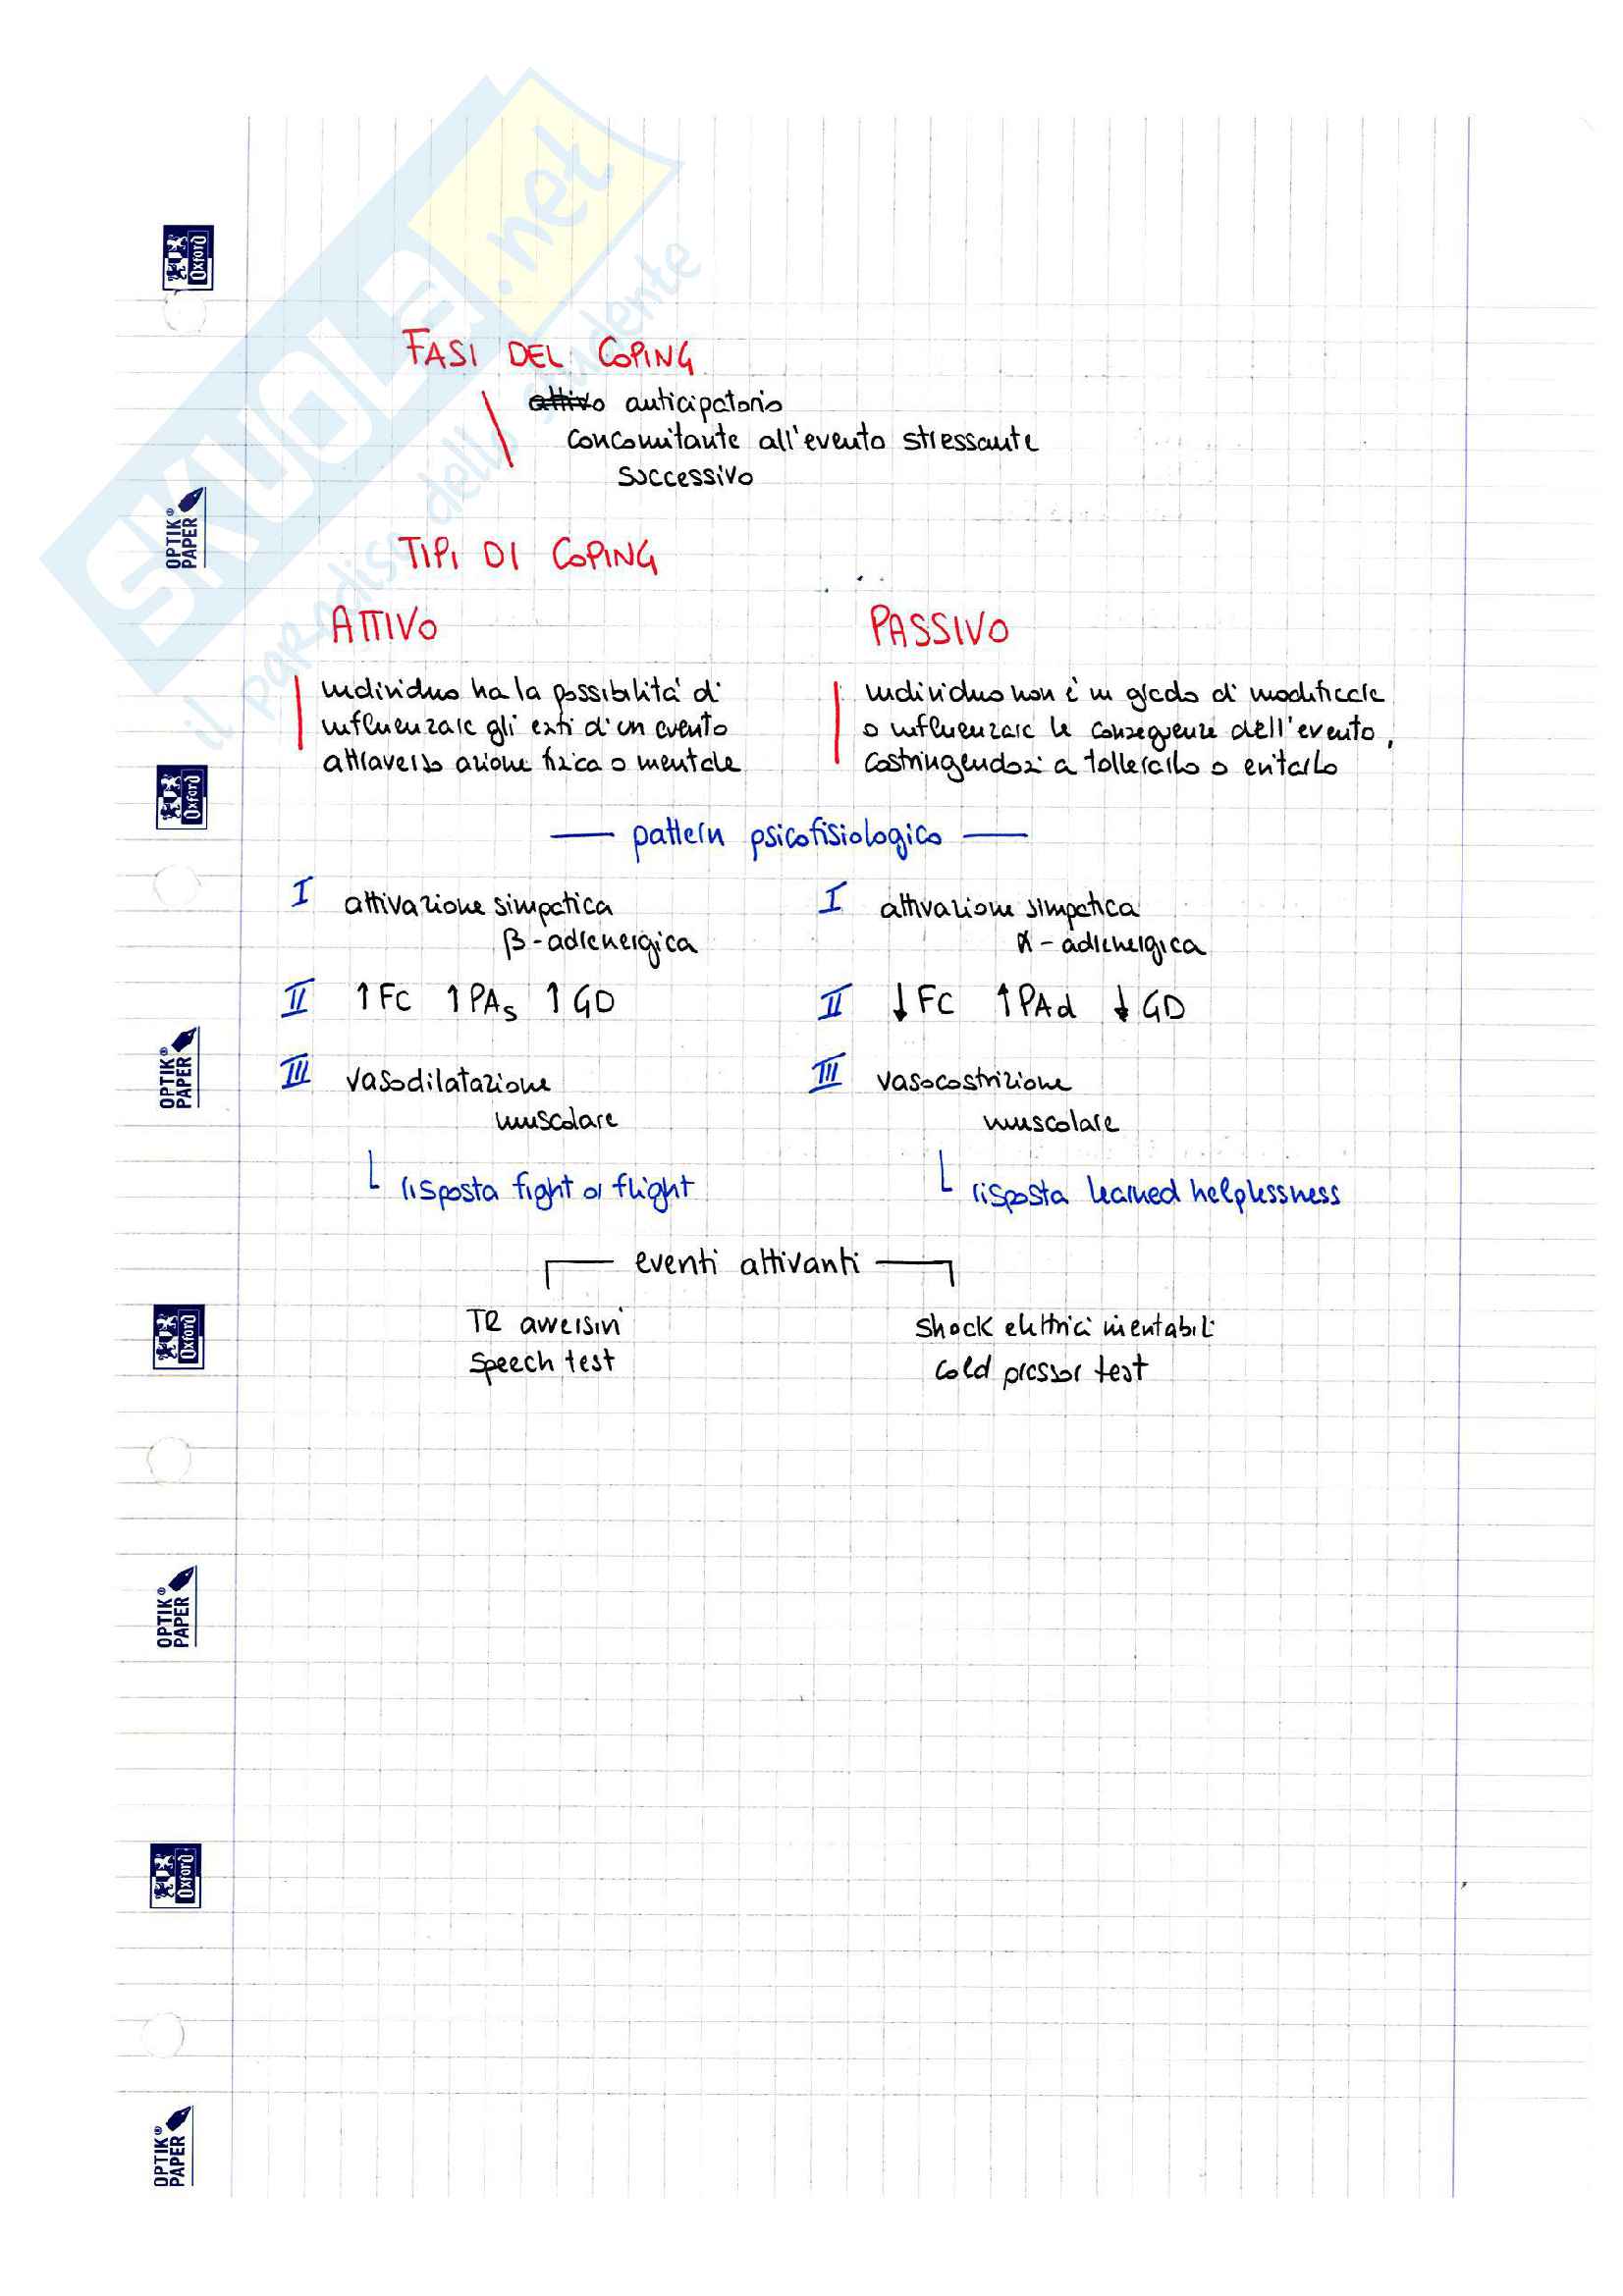 SKUOLA.net
il paradiso dello studente
Oxford
OPTIK®
PAPER
FASI DEL COPING
attivo anticipatorio
concomitante all'evento stressante
successivo
TIPI DI COPING
ATTIVO
individuo ha la possibilità di
influenzare gli esiti d'un evento
attraverso azione fisica o mentale
PASSIVO
individuo non è in grado di modificare
o influenzare le conseguenze dell'evento,
costringendosi a tollerarlo o evitarlo
Oxford
pattern psicofisiologico
I attivazione simpatica
β-adrenergica
II ↑FC ↑PAs ↑GD
III vasodilatazione
muscolare
risposta fight or flight
I attivazione simpatica
α-adrenergica
II ↓FC ↑PAd ↓GD
III vasocostrizione
muscolare
risposta learned helplessness
OPTIK®
PAPER
eventi attivanti
TR avversivi
Speech test
Shock elettrici inevitabili
Cold pressor test
Oxford
OPTIK®
PAPER
Oxford
OPTIK®
PAPER